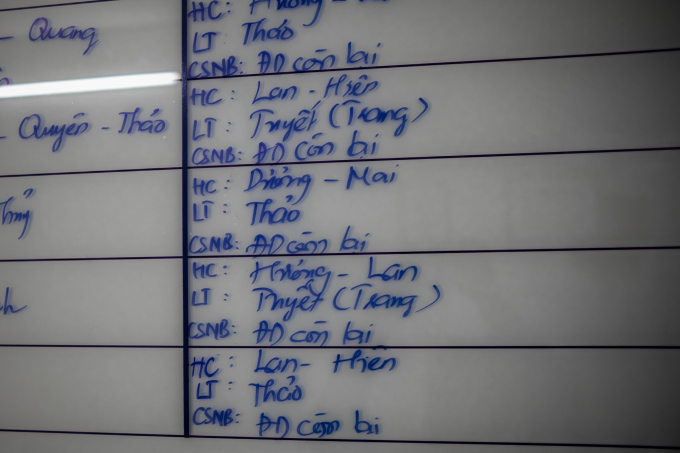 - Quang
HC: Hương -
LT Thảo
CSNB: ĐD còn lại
- Quyên - Thảo
HC: Lan - Hiên
LT: Tuyết (Trang)
CSNB: ĐD còn lại
HC: Dương - Mai
LT: Thảo
CSNB: ĐD còn lại
HC: Hương - Lan
LT: Tuyết (Trang)
CSNB: ĐD còn lại
HC: Lan - Hiên
LT: Thảo
CSNB: ĐD còn lại